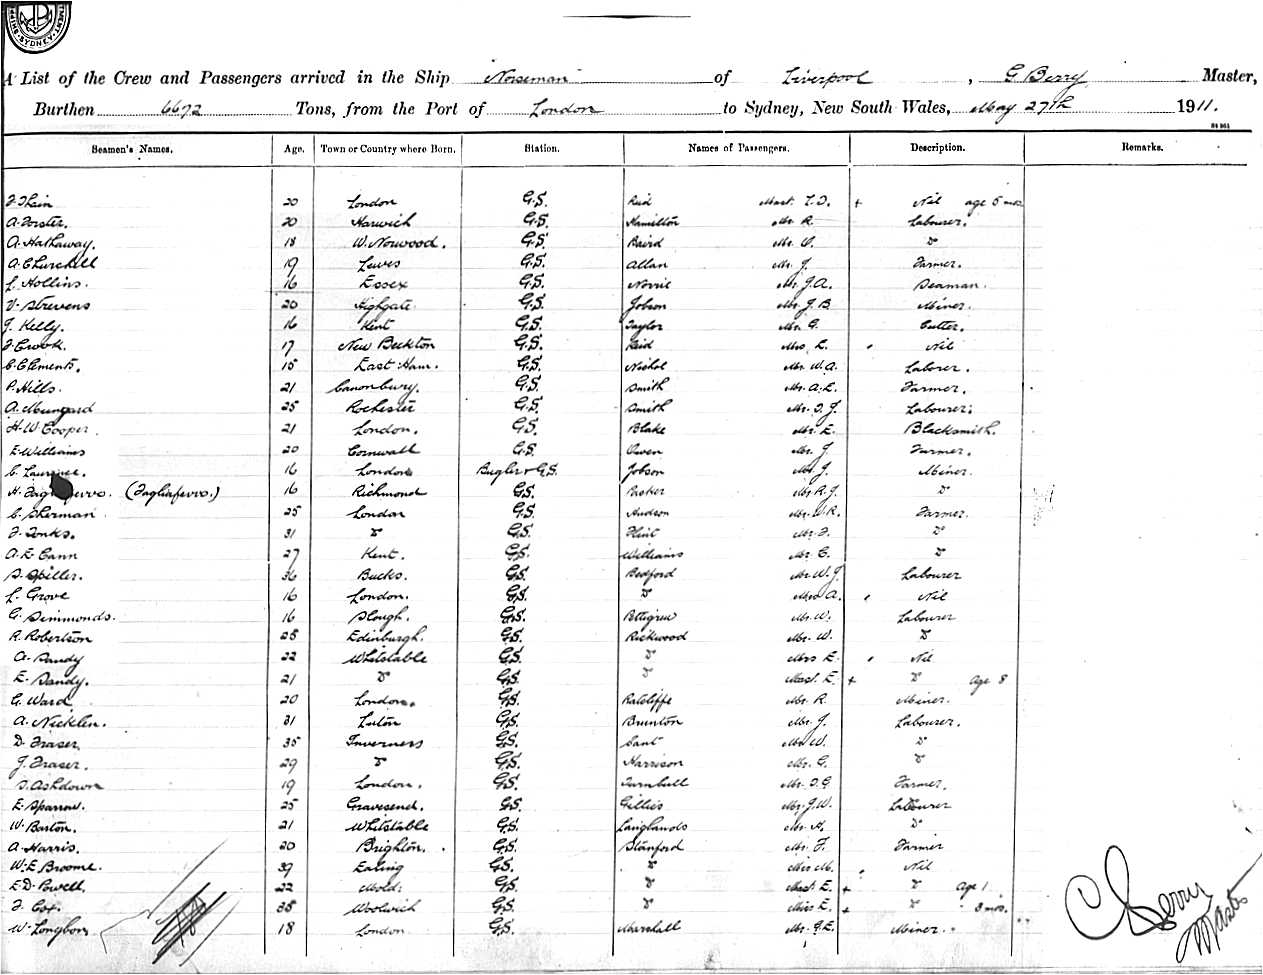 SYDNEY
A List of the Crew and Passengers arrived in the Ship Norseman of Liverpool, G Berry Master,
Burthen 6672 Tons, from the Port of London to Sydney, New South Wales, May 27th 1911.
Seamen's Names. Age. Town or Country where Born. Station. Names of Passengers. Description. Remarks.
F. Thain 20 London G.S. Reid Mast. T.D. + Nil age 5 mos
A. Forster. 20 Harwich G.S. Hamilton Mr. R. Labourer.
A. Hathaway. 18 W. Norwood. G.S. Baird Mr. Do
A. Churchill 19 Lewes G.S. Allan Mr. J. Farmer.
L. Hollins. 16 Essex G.S. Norrie Mr. J.A. Seaman.
V. Strevens 20 Highgate G.S. Jobson Mr. J.B. Miner.
J. Kelly. 16 Kent G.S. Taylor Mr. G. Cutter.
F. Crook. 17 New Beckton G.S. Reid Mrs. L. Nil
C. Clements. 15 East Ham. G.S. Nichol Mr. W.A. Laborer.
P. Hills. 21 Canonbury. G.S. Smith Mr. A.L. Farmer.
A. Mungard 25 Rochester G.S. Smith Mr. D.J. Labourer.
H.W. Cooper. 21 London. G.S. Blake Mr. E. Blacksmith.
E. Williams 20 Cornwall G.S. Owen Mr. J. Farmer.
C. Laurence. 16 London Bugler & G.S. Jobson Mr. J. Miner.
H. (Tagliaferro.) 16 Richmond G.S. Parker Mr R.J. Do
C. Sherman 25 London G.S. Hudson Mr. W.R. Farmer.
F. Tonks. 31 Do G.S. Flint Mr. F. Do
A.E. Cann 27 Kent. G.S. Williams Mr. C. Do
S. Spiller. 36 Bucks. G.S. Bedford Mr. W.J. Labourer
L. Grove 16 London. G.S. Do Mrs A. Nil
G. Simmonds. 16 Slough. G.S. Pettigrew Mr. W. Labourer
R. Robertson 25 Edinburgh. G.S. Rickwood Mr. W. Do
A. Dandy 22 Whitstable G.S. Do Mrs E. Nil
E. Dandy. 21 Do G.S. Do Mast. E. + Do Age 8
G. Ward 20 London. G.S. Ratcliffe Mr. R. Miner.
A. Nicklen. 31 Luton G.S. Brunton Mr. J. Labourer.
D. Fraser. 35 Inverness G.S. Gant Mr. W. Do
J. Fraser. 29 Do G.S. Harrison Mr. C. Do
S. Ashdown 19 London. G.S. Turnbull Mr. D.G Farmer.
E. Sparrow. 25 Gravesend. G.S. Gillies Mr. J.W. Labourer
W. Barton. 21 Whitstable G.S. Langlands Mr. H. Do
A. Harris. 20 Brighton. G.S. Stanford Mr. F. Farmer
W.E. Broome. 39 Ealing G.S. Do Mrs M. Nil
E.D. Powell. 22 Mold. G.S. Do Mast. E. + Do Age 1
F. Cox. 35 Woolwich G.S. Do Miss E. + Do 3 mos.
W. Longbon 18 London G.S. Marshall Mr. G.E. Miner.
G Berry
Master